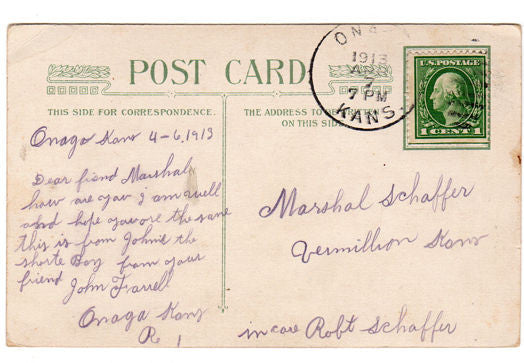 POST CARD
ONA
1913
APR
7
7 PM
KANS.
U.S. POSTAGE
1 CENT 1
THIS SIDE FOR CORRESPONDENCE.
THE ADDRESS TO BE
ON THIS SIDE
Onaga Kans 4-6, 1913
Dear fiend Marshal
how are you i am well
and hope you are the same
this is from Johnie the
shorte Boy from your
friend John Farrell
Onaga Kans
R 1
Marshal Schaffer
Vermillion Kans
in care Robt Schaffer